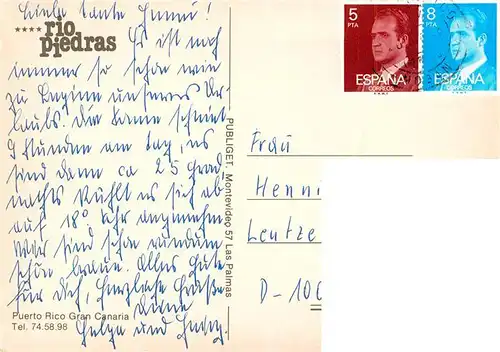 Liebe Tante Henni!
★★★★ rio piedras
Es ist noch
immer so schön wie
zu Beginn unseres Ur-
laubs. Die Sonne scheint
9 Stunden am Tag, es
sind dann ca 25 Grad,
nachts kühlt es sich ab
auf 18° sehr angenehm.
Wir sind schon rundum
schön braun. Alles Gute
für Dich, herzliche Grüße
Deine
Helga und
Puerto Rico Gran Canaria
Tel. 74.58.98
PUBLIGET. Montevideo 57 Las Palmas
5
PTA
ESPAÑA
CORREOS
8
PTA
ESPAÑA
CORREOS
Frau
Henni
Leutze
D-100